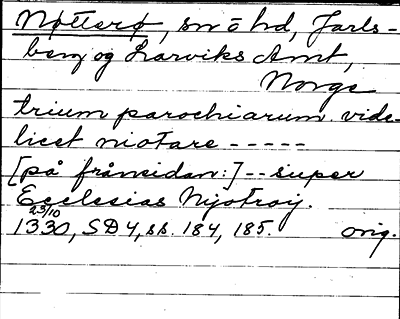 Nøtterø, sn ö hd, Jarls-
berg og Larviks Amt,
Norge
trium parochiarum vide-
licet niotare -----
[på frånsidan:] -- super
Ecclesias Nijotroÿ.
23/10
1330, SD 4, ss. 184, 185. orig.